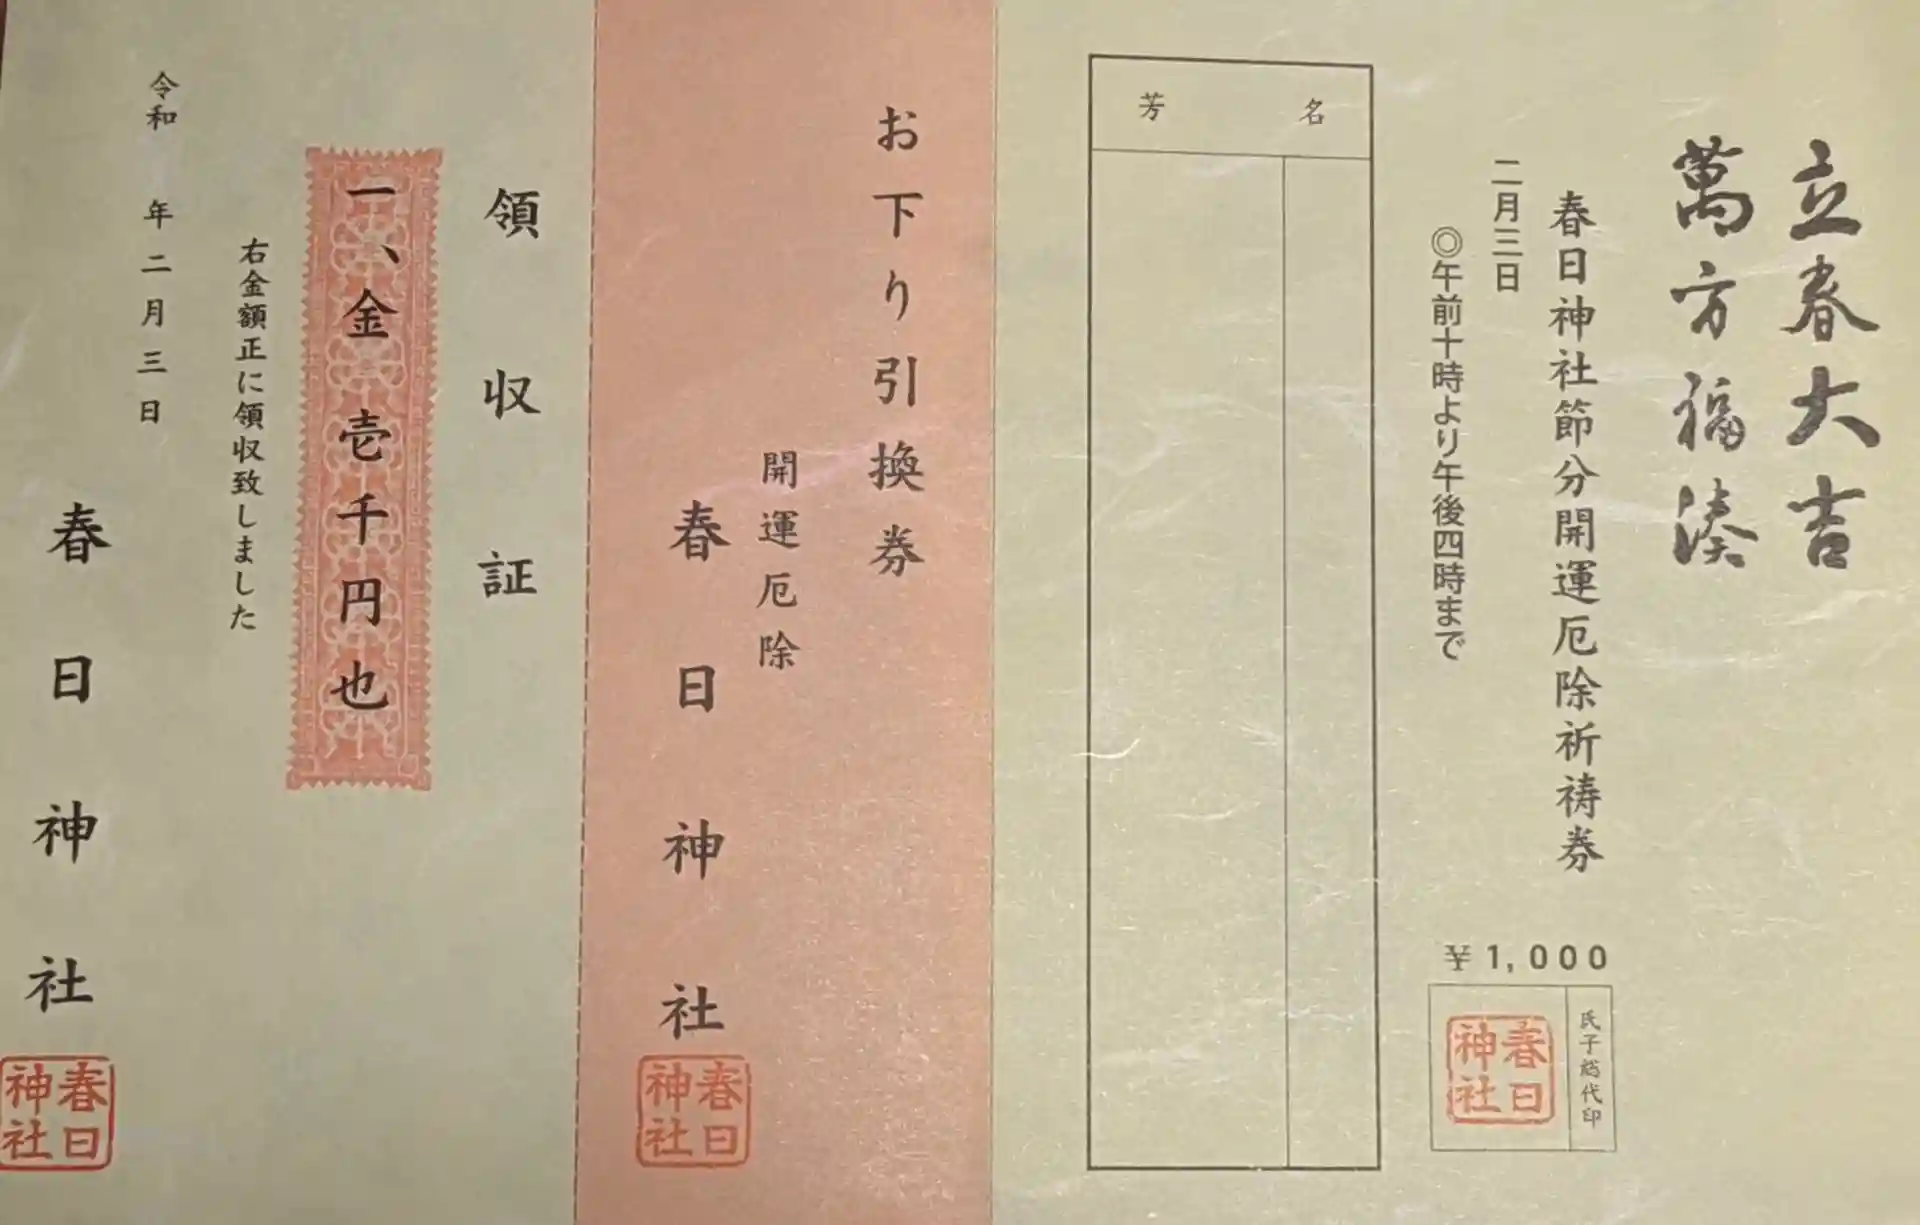 立春大吉
萬方福湊
春日神社節分開運厄除祈祷券
二月三日
◎午前十時より午後四時まで
¥1,000
氏子総代印
春日
神社
芳名
お下り引換券
開運厄除
春日神社
春日
神社
領収証
一、金壱千円也
右金額正に領収致しました
令和 年二月三日
春日神社
春日
神社